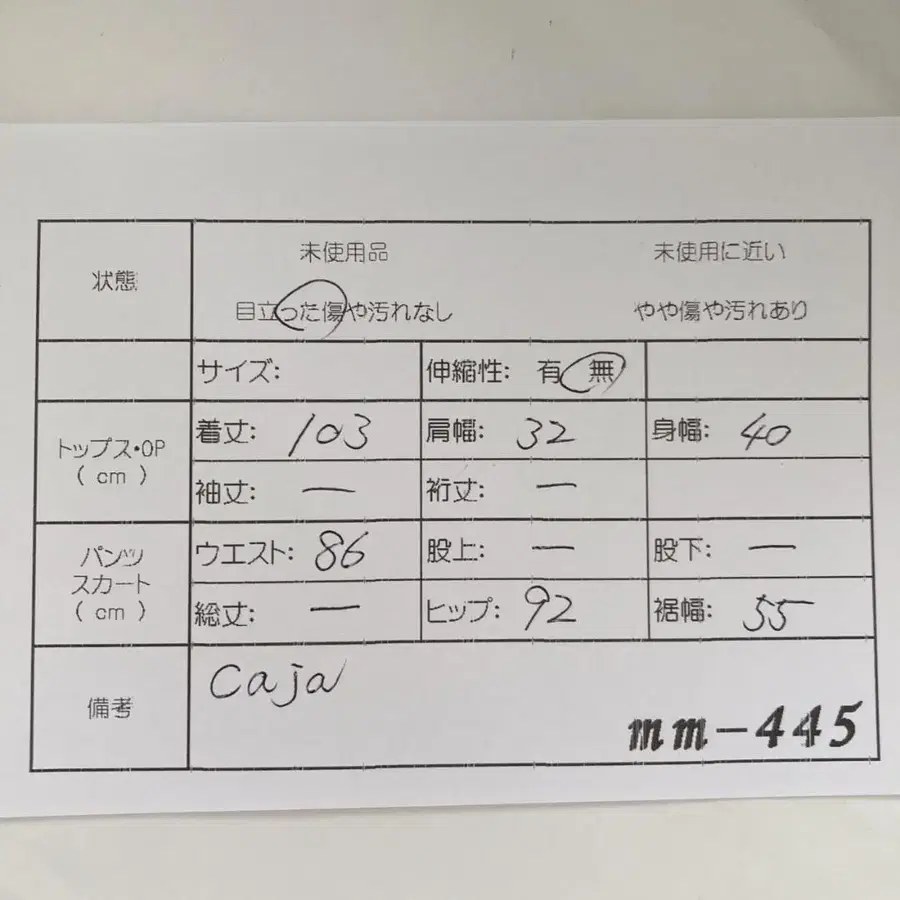 状態
未使用品 未使用に近い
目立った傷や汚れなし やや傷や汚れあり
サイズ: 伸縮性: 有 無
トップス・OP
( cm )
着丈: 103 肩幅: 32 身幅: 40
袖丈: ― 裄丈: ―
パンツ
スカート
( cm )
ウエスト: 86 股上: ― 股下: ―
総丈: ― ヒップ: 92 裾幅: 55
備考
Caja
mm-445